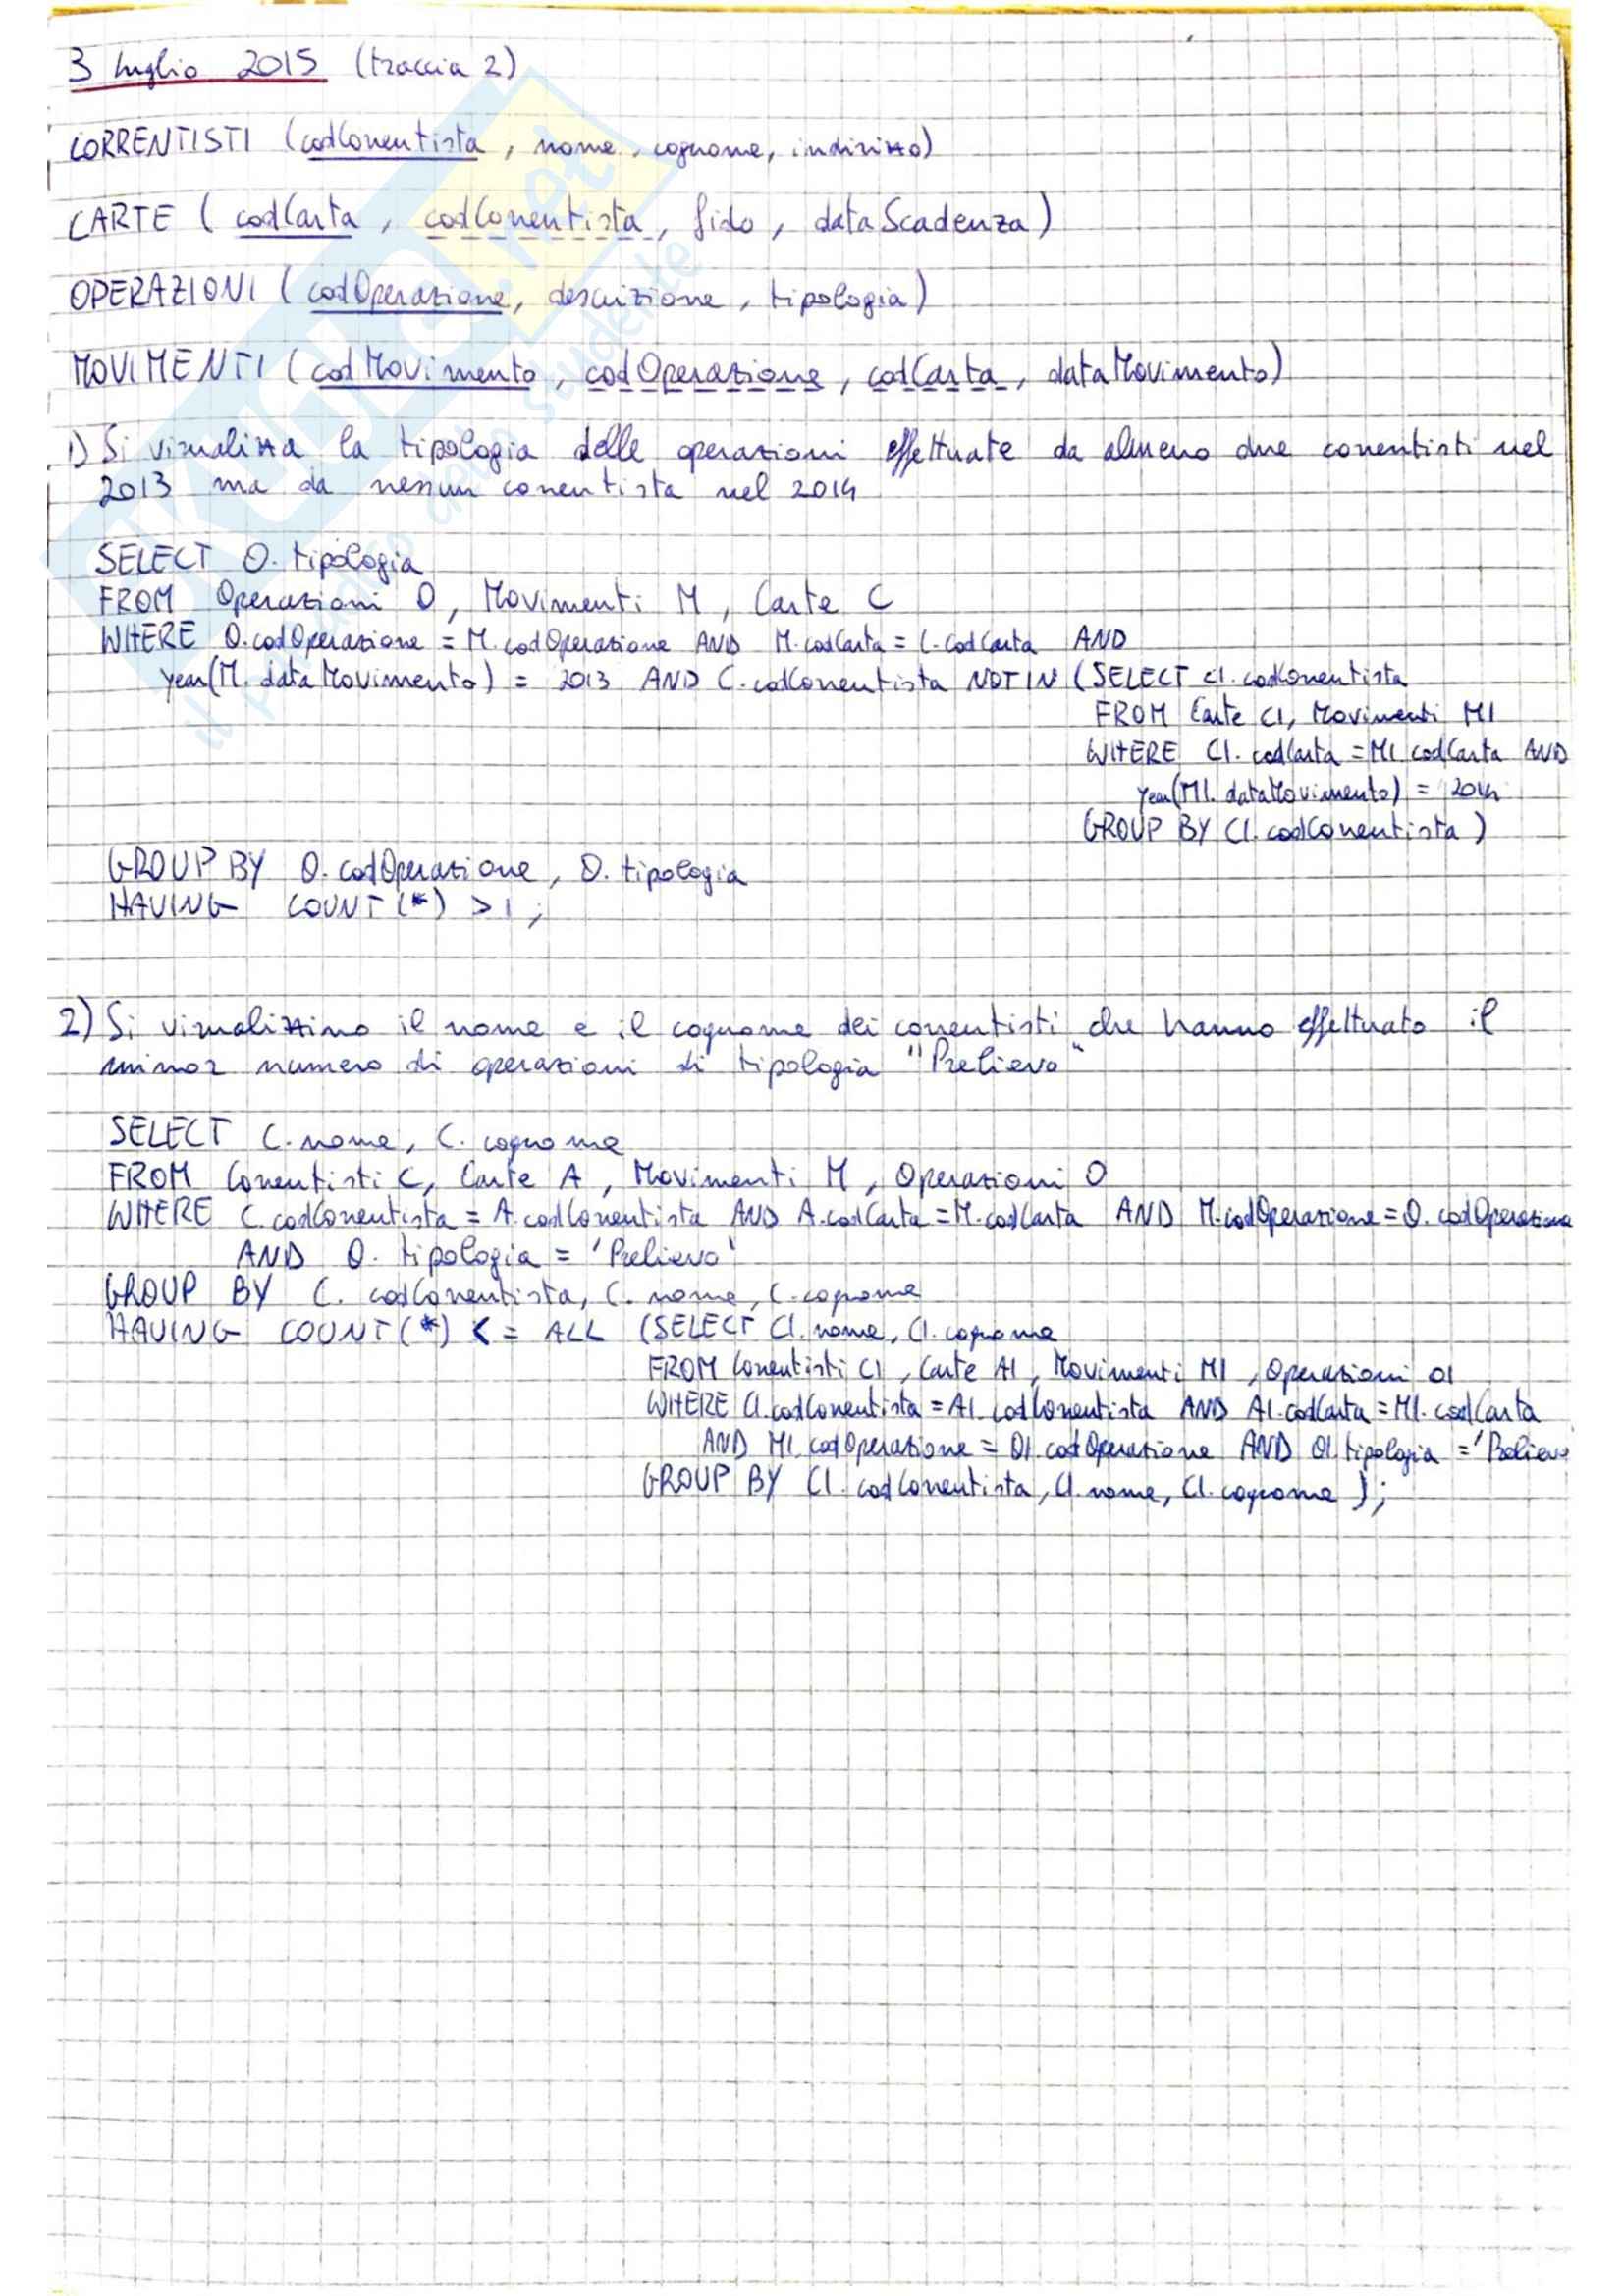 3 luglio 2015 (traccia 2)
CORRENTISTI (codCorrentista, nome, cognome, indirizzo)
CARTE (codCarta, codCorrentista, fido, dataScadenza)
OPERAZIONI (codOperazione, descrizione, tipologia)
MOVIMENTI (codMovimento, codOperazione, codCarta, dataMovimento)
1) Si visualizza la tipologia delle operazioni effettuate da almeno due correntisti nel
2013 ma da nessun correntista nel 2014
SELECT O.tipologia
FROM Operazioni O, Movimenti M, Carte C
WHERE O.codOperazione = M.codOperazione AND M.codCarta = C.codCarta AND
year(M.dataMovimento) = 2013 AND C.codCorrentista NOT IN (SELECT C1.codCorrentista
FROM Carte C1, Movimenti M1
WHERE C1.codCarta = M1.codCarta AND
year(M1.dataMovimento) = 2014
GROUP BY C1.codCorrentista)
GROUP BY O.codOperazione, O.tipologia
HAVING COUNT(*) > 1;
2) Si visualizzino il nome e il cognome dei correntisti che hanno effettuato il
minor numero di operazioni di tipologia "Prelievo"
SELECT C.nome, C.cognome
FROM Correntisti C, Carte A, Movimenti M, Operazioni O
WHERE C.codCorrentista = A.codCorrentista AND A.codCarta = M.codCarta AND M.codOperazione = O.codOperazione
AND O.tipologia = 'Prelievo'
GROUP BY C.codCorrentista, C.nome, C.cognome
HAVING COUNT(*) <= ALL (SELECT C1.nome, C1.cognome
FROM Correntisti C1, Carte A1, Movimenti M1, Operazioni O1
WHERE C1.codCorrentista = A1.codCorrentista AND A1.codCarta = M1.codCarta
AND M1.codOperazione = O1.codOperazione AND O1.tipologia = 'Prelievo
GROUP BY C1.codCorrentista, C1.nome, C1.cognome);